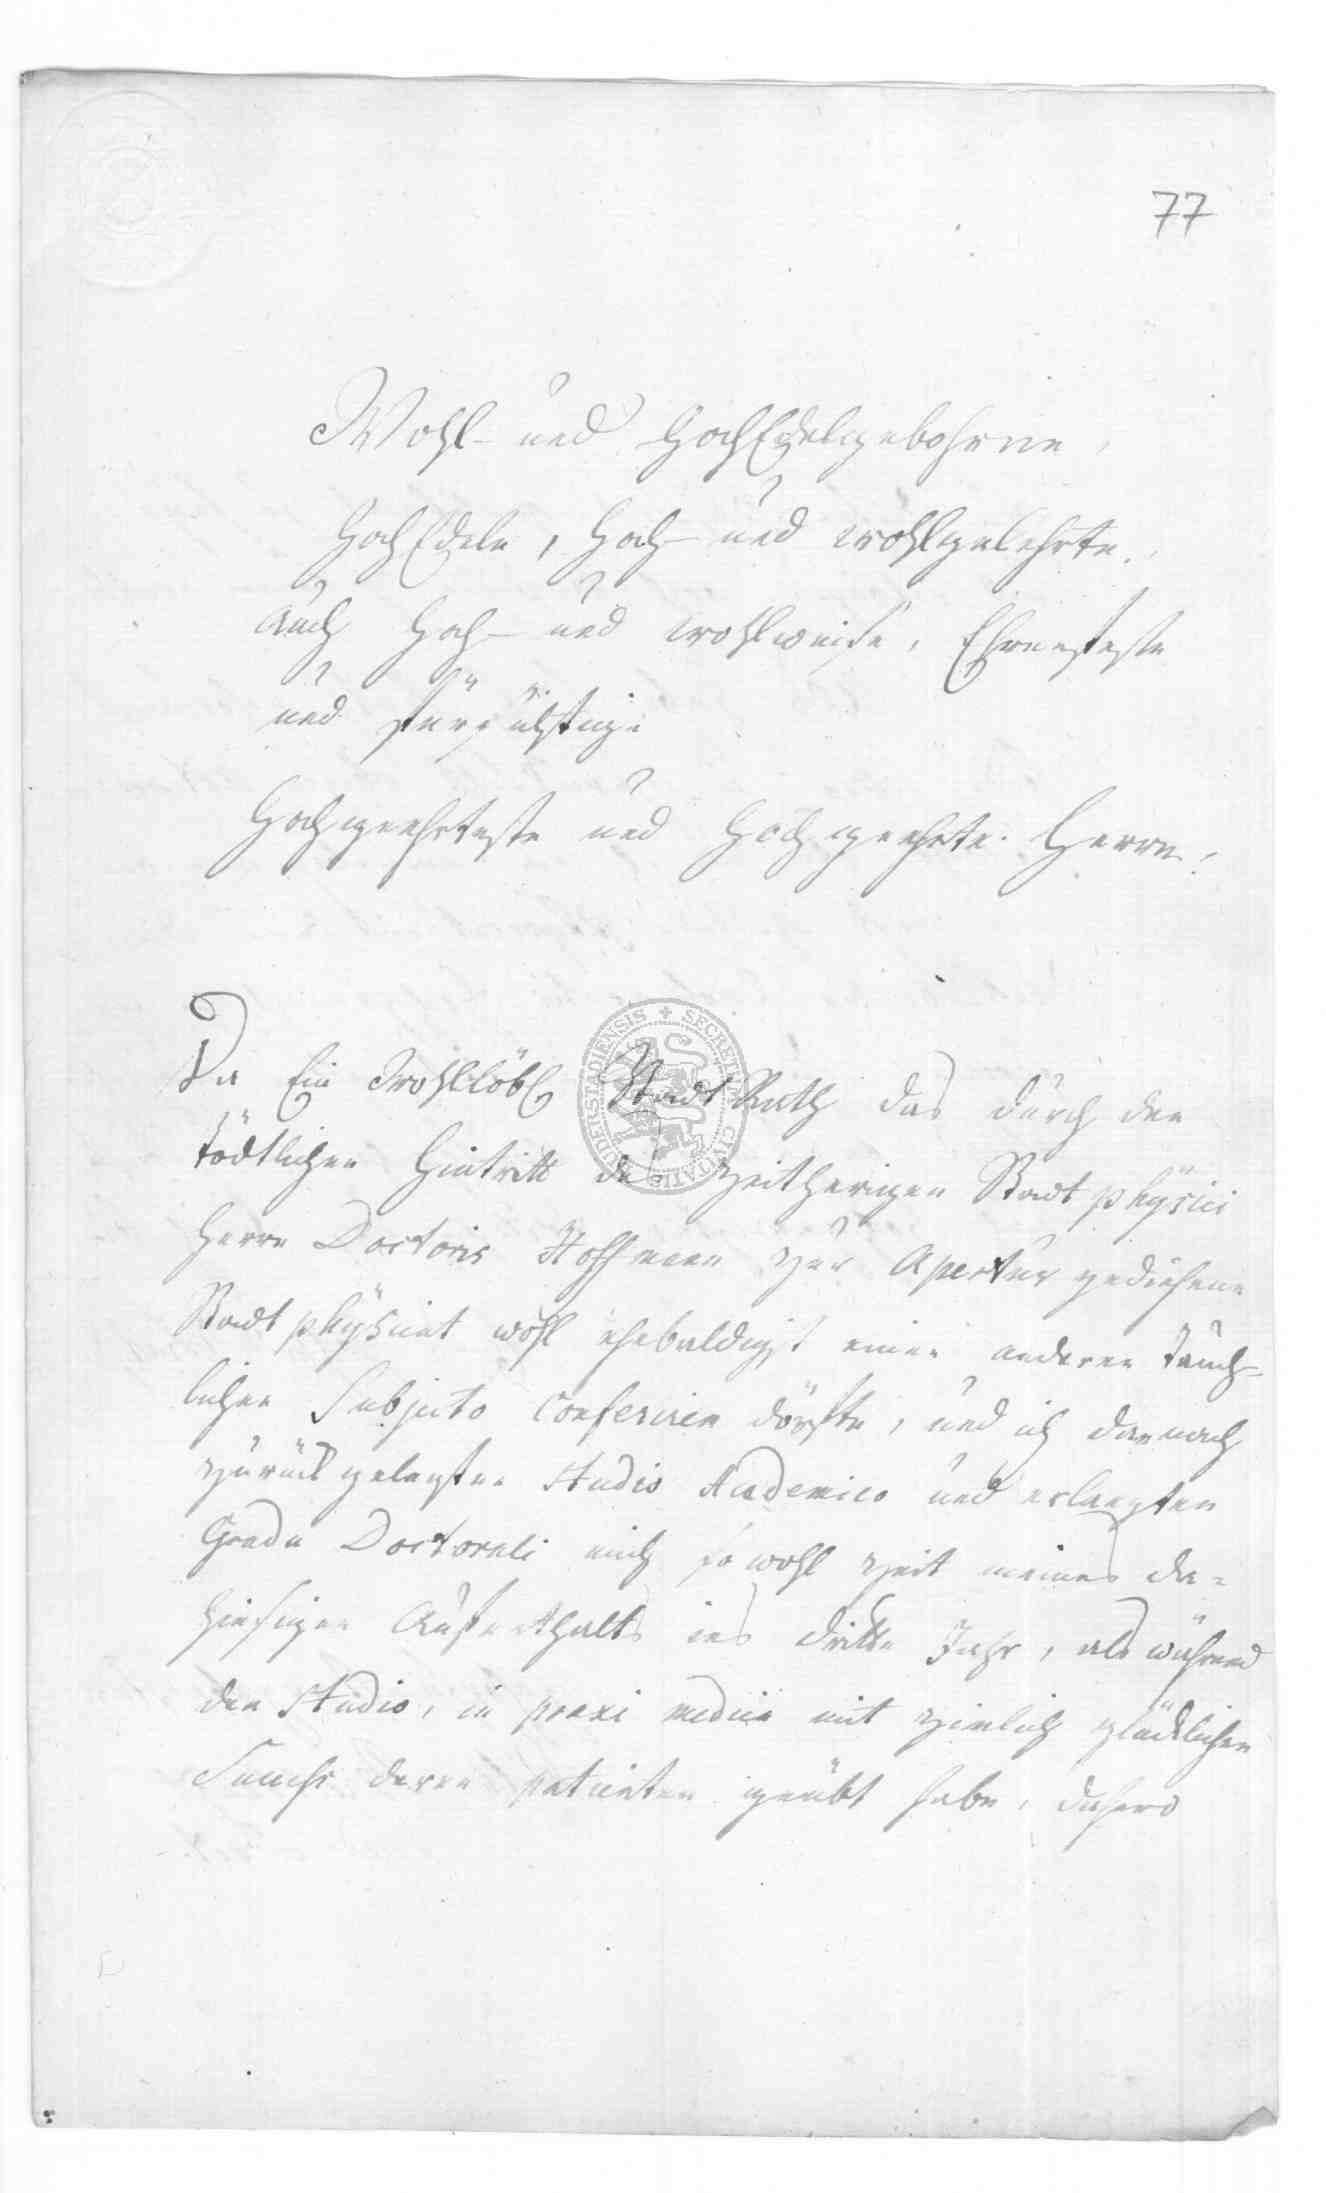 77
Wohl- und HochEdelgebohrne,
HochEdele, Hoch- und wohlgelehrte,
auch Hoch- und wohlweise, Ehrnvesteste
und fürsichtige
Hochgeehrteste und Hochgeehrte Herrn!
Da Ein Wohllöbl Stadt Rath das durch den
tödtlichen Hintritt des zeitherigen Stadt physici
Herrn Doctoris Hoffmann zur Apertur gediehene
Stadt physicat wohl ehebaldigst einen anderen tauch-
lichen Subjecto conferiren dörfte, und ich darnach
zurück gelegten Studio Academico und erlangten
Gradu Doctorali mich so wohl Zeit meines da=
hiesigen Aufenthalts ins dritte Jahr, als während
den Studio, in praxi medica mit zimlich glücklichen
deren patienten geübt habe, dahero
SECRETUM CIVITATIS DUDERSTADIENSIS